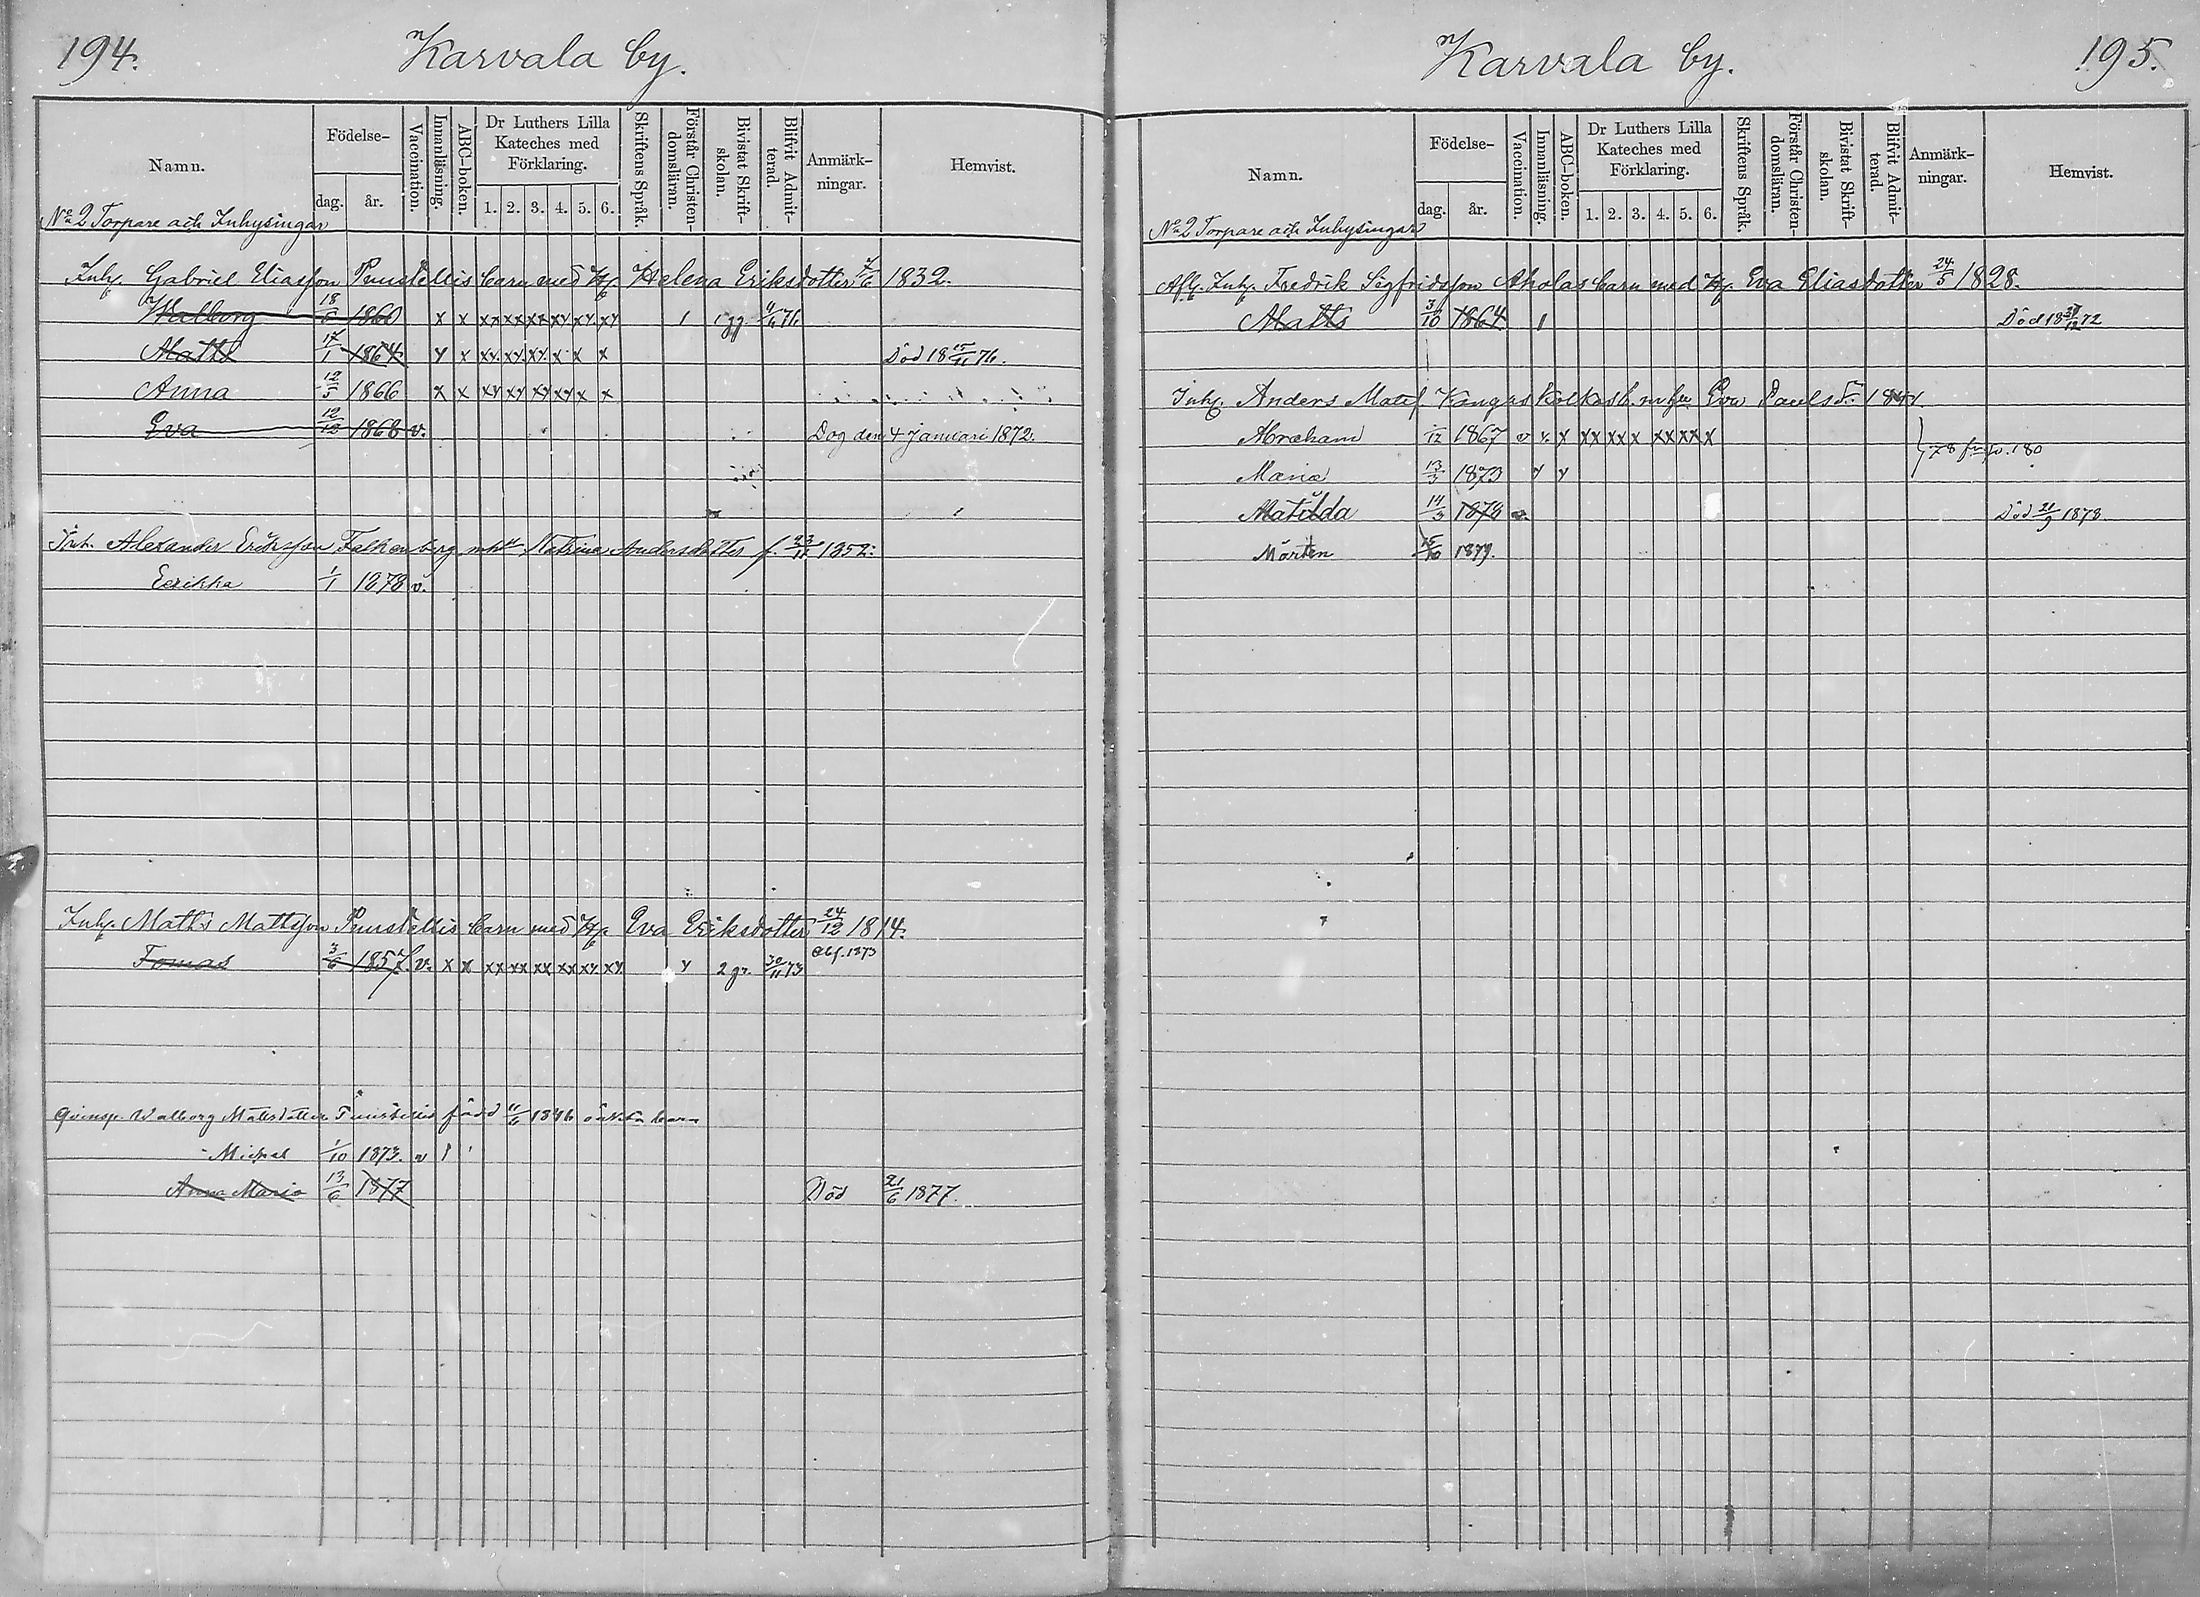 194.
Karvala by.
Namn.
Födelse-
dag.
år.
Vaccination.
Innanläsning.
ABC-boken.
Dr Luthers Lilla
Kateches med
Förklaring.
1. 2. 3. 4. 5. 6.
Skriftens Språk.
Förstår Christen-
domsläran.
Bivistat Skrift-
skolan.
Blifvit Admit-
terad.
Anmärk-
ningar.
Hemvist.
No 2 Torpare och Inhysingar
Inh. Gabriel Eliasson Penistellis barn med H. Helena Eriksdotter 1832.
Walborg 18/6 1860 x x xx xx xx xy xy xy 1 1 gg. 76
Matts 17/1 1864 y x xy xy xy x x x Död 18 15/11 76.
Anna 12/5 1866 x x xy xy xy xy x x
Eva 12/12 1868 v. Dog den 4 Januari 1872.
Inh. Alexander Eriksson Falkenberg Katrina Andersdotter f. 23/11 1852:
Eerikka 1/1 1878 v.
Inh. Matts Mattsson Penistellis barn med H. Eva Eriksdotter 24/12 1814.
Tomas 3/6 1857 v. x x xx xx xx xx xy xy y 2 gr. 30/11 73 1873
Walborg Mattsdotter född 11/6 1846 oäkta barn
Michel 1/10 1873. v
Anna Maria 13/6 1877 Död 21/6 1877.
Karvala by.
195.
Namn.
Födelse-
dag.
år.
Vaccination.
Innanläsning.
ABC-boken.
Dr Luthers Lilla
Kateches med
Förklaring.
1. 2. 3. 4. 5. 6.
Skriftens Språk.
Förstår Christen-
domsläran.
Bivistat Skrift-
skolan.
Blifvit Admit-
terad.
Anmärk-
ningar.
Hemvist.
No 2 Torpare och Inhysingar
Afl. Inh. Fredrik Sigfridsson Aholas barn med H. Eva Eliasdotter 24/5 1828.
Matts 3/10 1864 1 Död 18 72
Inh. Anders Mats Kangas Kolkas b. m. hu Eva Paulsd.
Abraham 1867 v x xx xx x xx xx x
Maria 13/3 1873 y y } 78 fr p. 180
Matilda 14/3 Död 21/9 1878.
Mårten 1879.